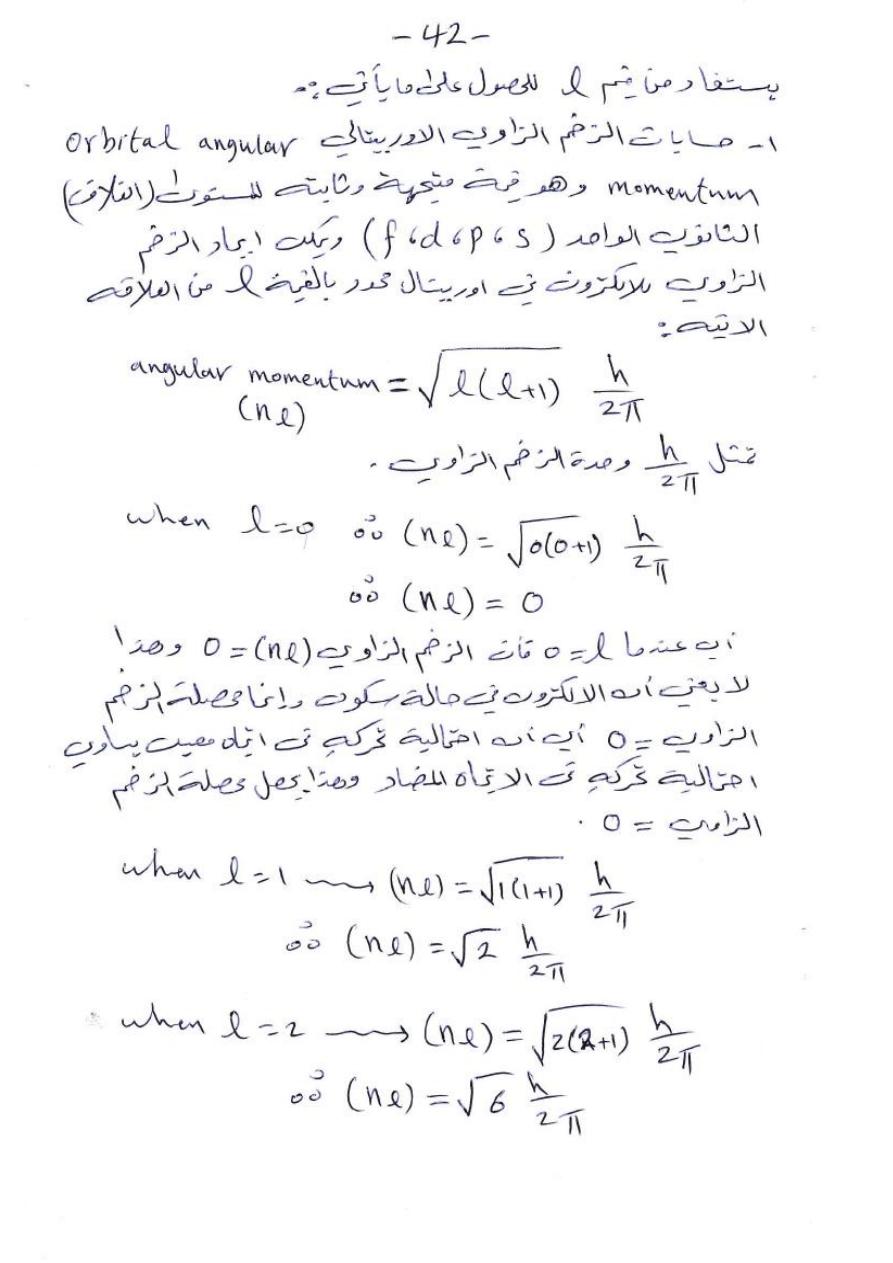 - 42 -
يستفاد من قيم l للحصول على ما يأتي :-
١- حسابات الزخم الزاوي الاوربيتالي orbital angular
momentum وهو قيمة متجهة وثابته للمستوى (الغلاف)
الثانوي الواحد (s ، p ، d ، f) ويمكن ايجاد الزخم
الزاوي للالكترون في اوربيتال محدد بالقيمة l من العلاقه
الاتيه :
angular momentum = √l(l+1) h/2π
(nl)
تمثل h/2π وحدة الزخم الزاوي .
when l=0 ∴ (nl) = √0(0+1) h/2π
∴ (nl) = 0
أي عندما l=0 فان الزخم الزاوي (nl)=0 وهذا
لا يعني أن الالكترون في حالة سكون وإنما محصلة الزخم
الزاوي = 0 أي أن احتمالية تحركه في اتجاه معين يساوي
احتمالية تحركه في الاتجاه المضاد وهذا يجعل محصلة الزخم
الزاوي = 0 .
when l=1 ⟿ (nl) = √1(1+1) h/2π
∴ (nl) = √2 h/2π
when l=2 ⟿ (nl) = √2(2+1) h/2π
∴ (nl) = √6 h/2π